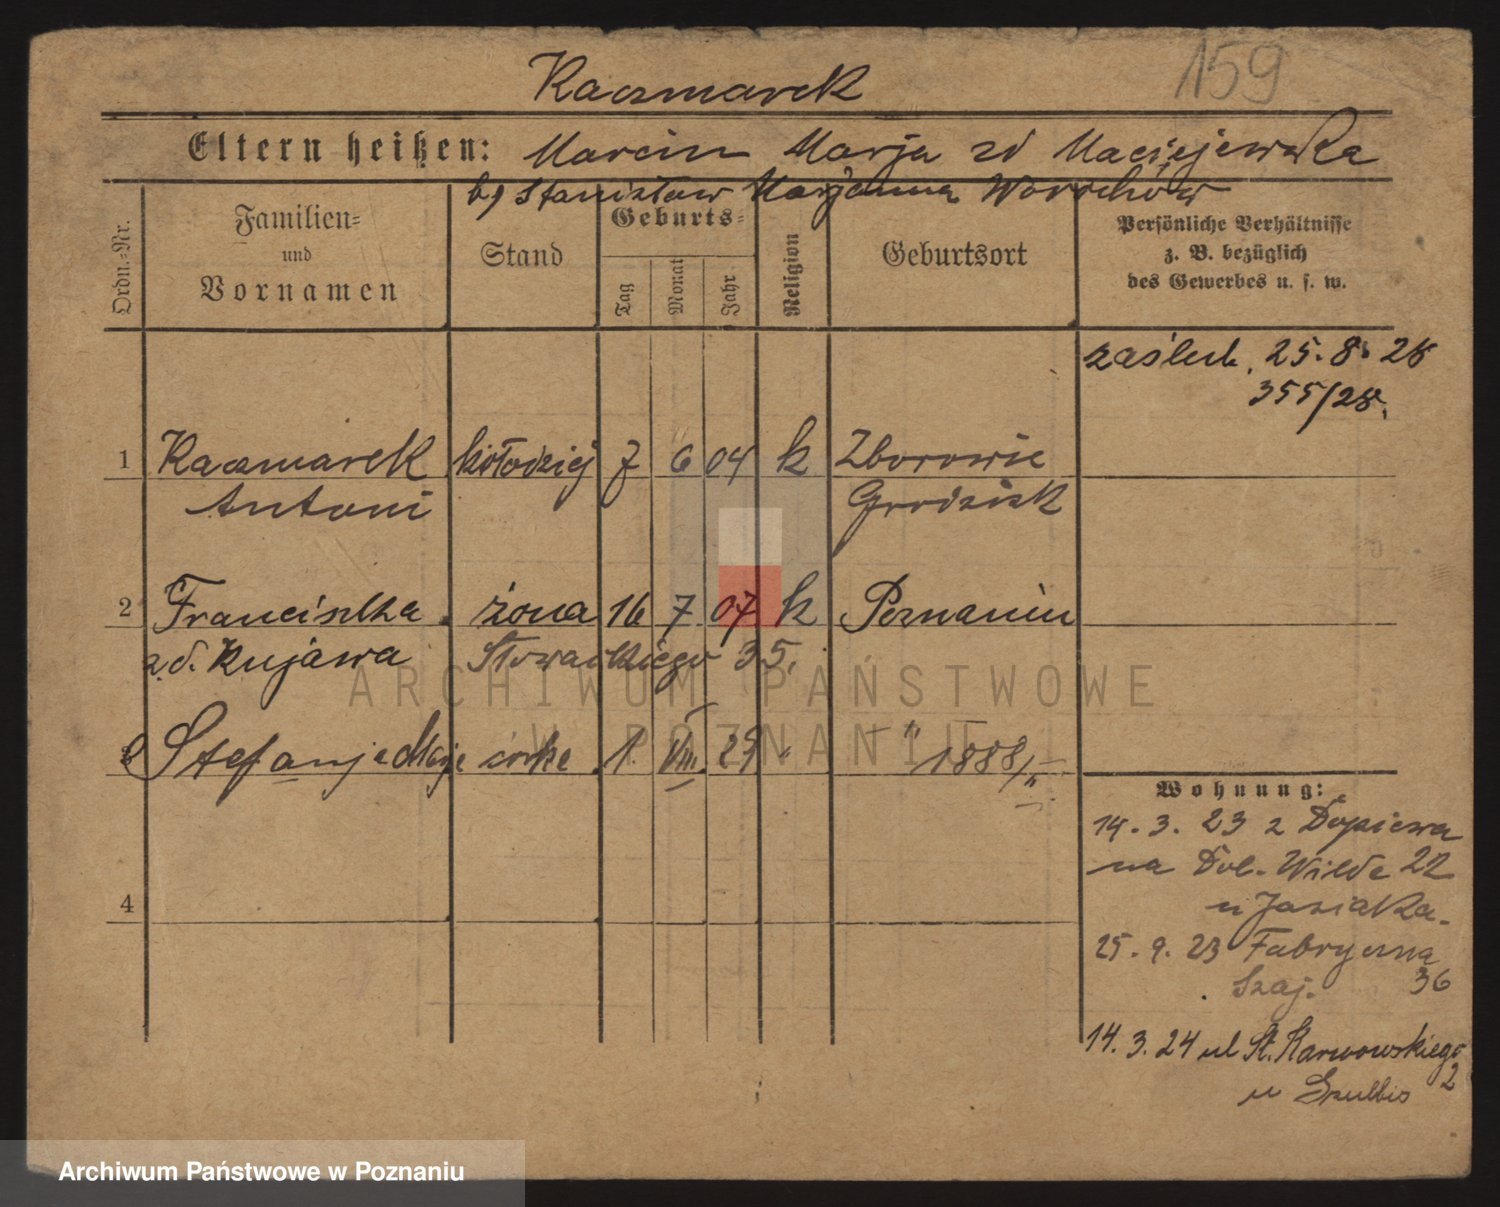 Kaczmarek
159
Eltern heißen: Marcin Marja zd Maciejewska
b) Stanisław Marjanna Worochów
Ordn.-Nr.
Familien-
und
Vornamen
Stand
Geburts-
Tag
Monat
Jahr
Religion
Geburtsort
Persönliche Verhältnisse
z. B. bezüglich
des Gewerbes u. s. w.
zaślub. 25. 8. 28
355/28.
1 Kaczmarek kołodziej 7 6 04 k Zborowie
Antoni Grodzisk
2 Franciszka żona 16 7 07 k Poznaniu
z d. Kujawa Słowackiego 35.
3 Stefanja Marja córka 1. VIII. 29 " - " -
1888/
4
Wohnung:
14. 3. 23 z Dopiewa
na Dol. Wilda 22
u Jasiaka.
25. 9. 23 Fabryczna
Szaj. 36
14. 3. 24 ul St. Karwowskiego
2
u
ARCHIWUM PAŃSTWOWE
W POZNANIU
Archiwum Państwowe w Poznaniu